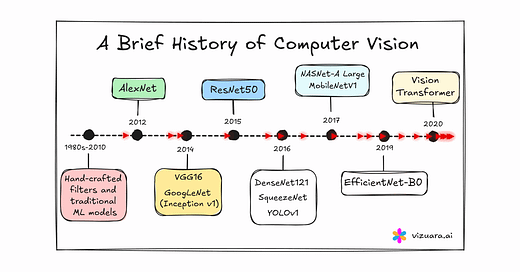 A Brief History of Computer Vision
AlexNet
ResNet50
NASNet-A Large
MobileNetV1
Vision
Transformer
1980s-2010
2012
2014
2015
2016
2017
2019
2020
Hand-crafted
filters and
traditional
ML models
VGG16
GoogLeNet
(Inception v1)
DenseNet121
SqueezeNet
YOLOv1
EfficientNet-B0
vizuara.ai